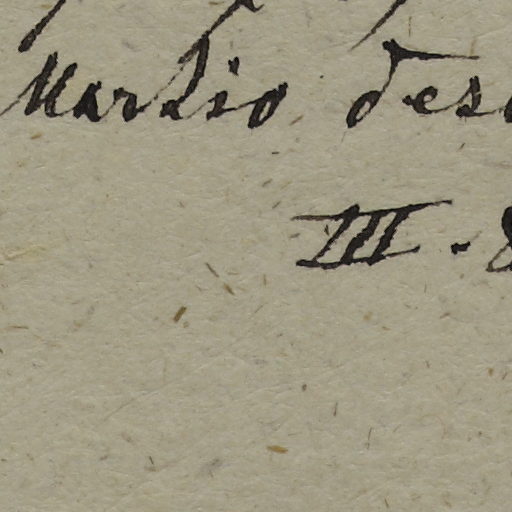 Martio des
III. 8